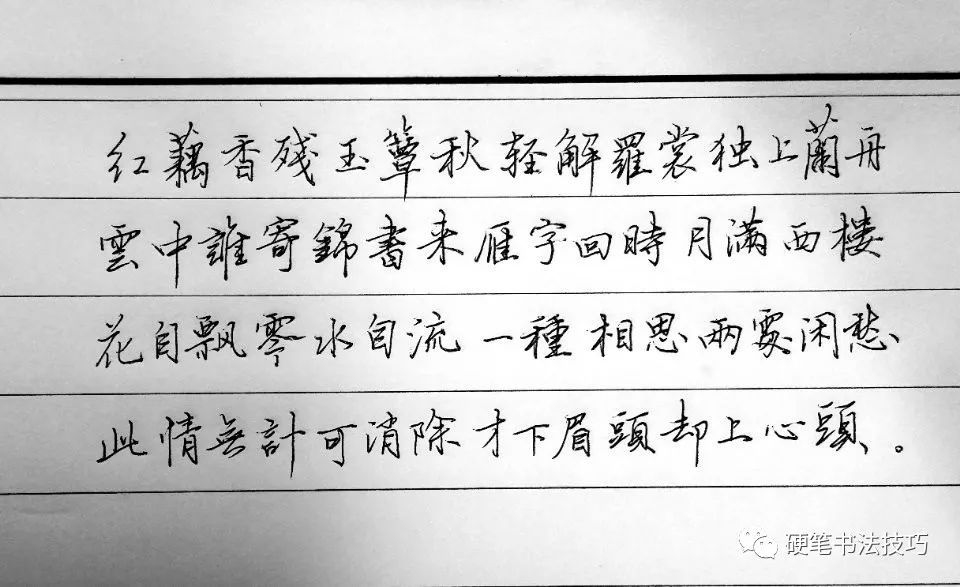 红藕香残玉簟秋轻解羅裳独上蘭舟
雲中誰寄錦書来雁字回時月滿西楼
花自飘零水自流一種相思兩處闲愁
此情無計可消除才下眉頭却上心頭。
硬笔书法技巧